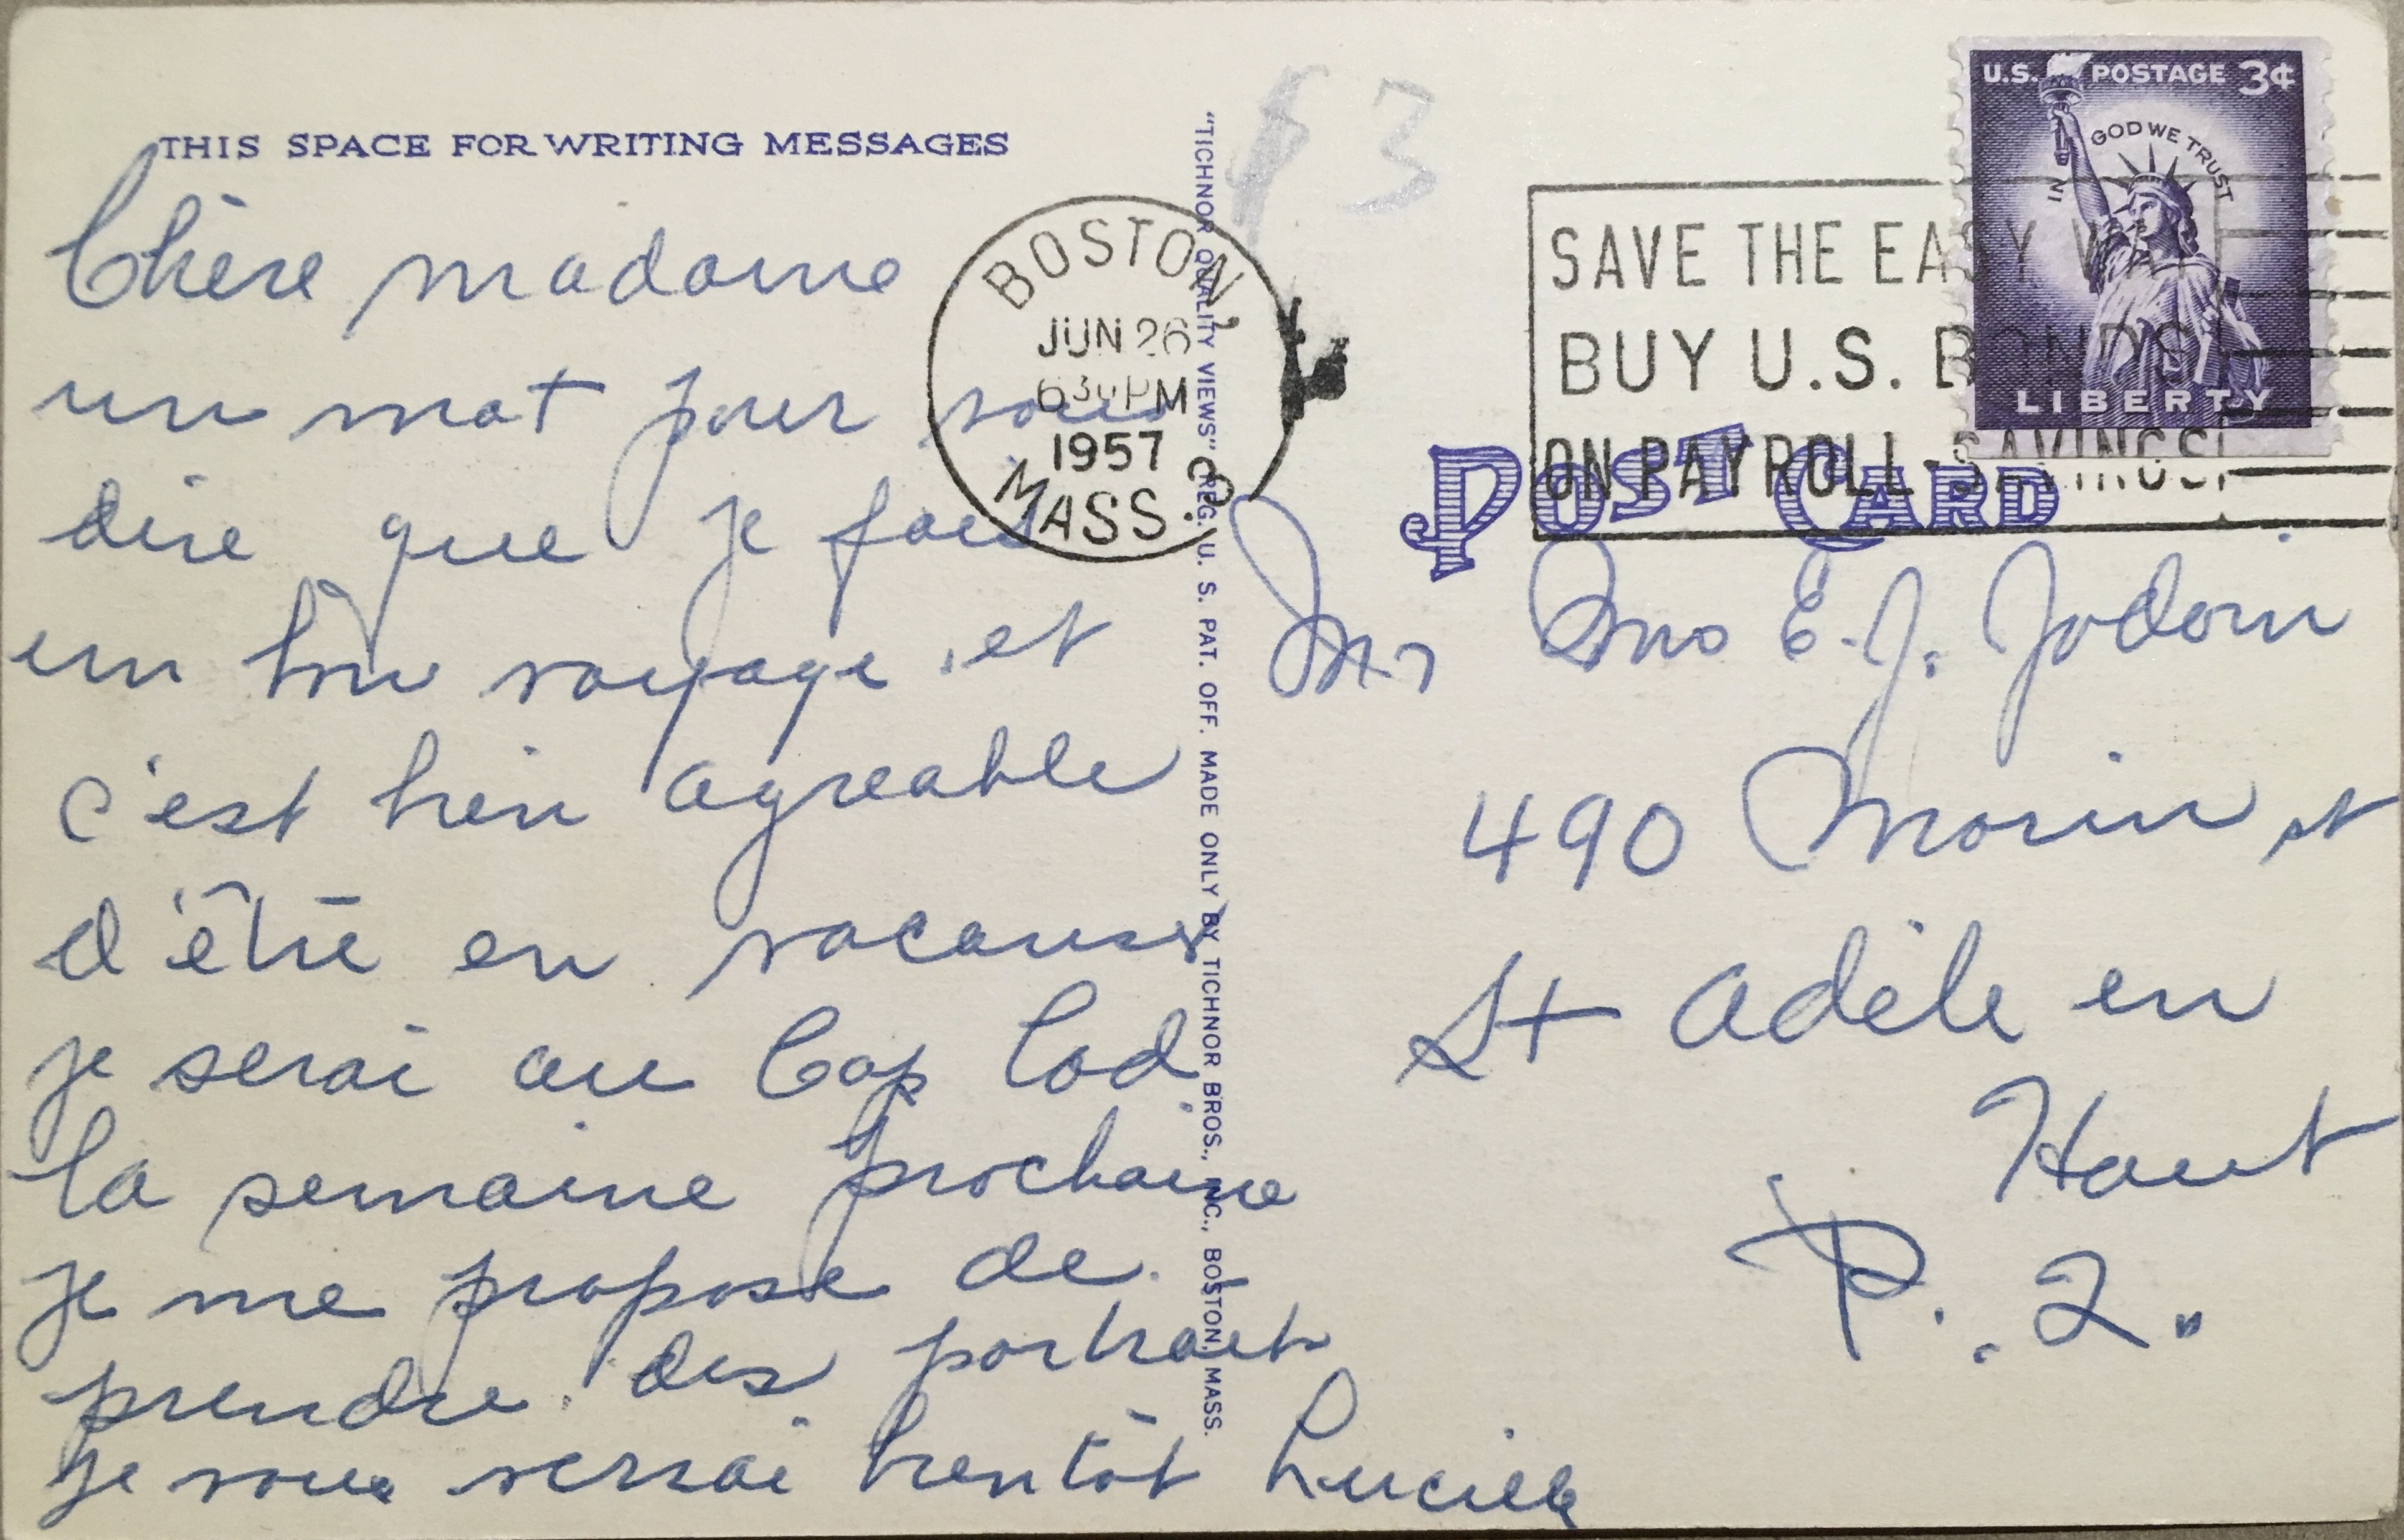 THIS SPACE FOR WRITING MESSAGES
Chère madame
un mot pour vous
dire que je fais
un bon voyage, et
c'est bien agreable
d'être en vacances
je serai au Cap Cod
la semaine prochaine
je me propose de
prendre des portraits
je vous verrai bientôt Lucille
"TICHNOR QUALITY VIEWS" REG. U. S. PAT. OFF. MADE ONLY BY TICHNOR BROS., INC., BOSTON, MASS.
$3
BOSTON,
JUN 26
630PM
1957
MASS.
SAVE THE EASY WAY
BUY U.S. BONDS
ON PAYROLL SAVINGS!
U.S. POSTAGE 3¢
IN GOD WE TRUST
LIBERTY
POST CARD
Mr Mme E. J. Jodoin
490 Morin st
St Adèle en
Haut
P. Q.